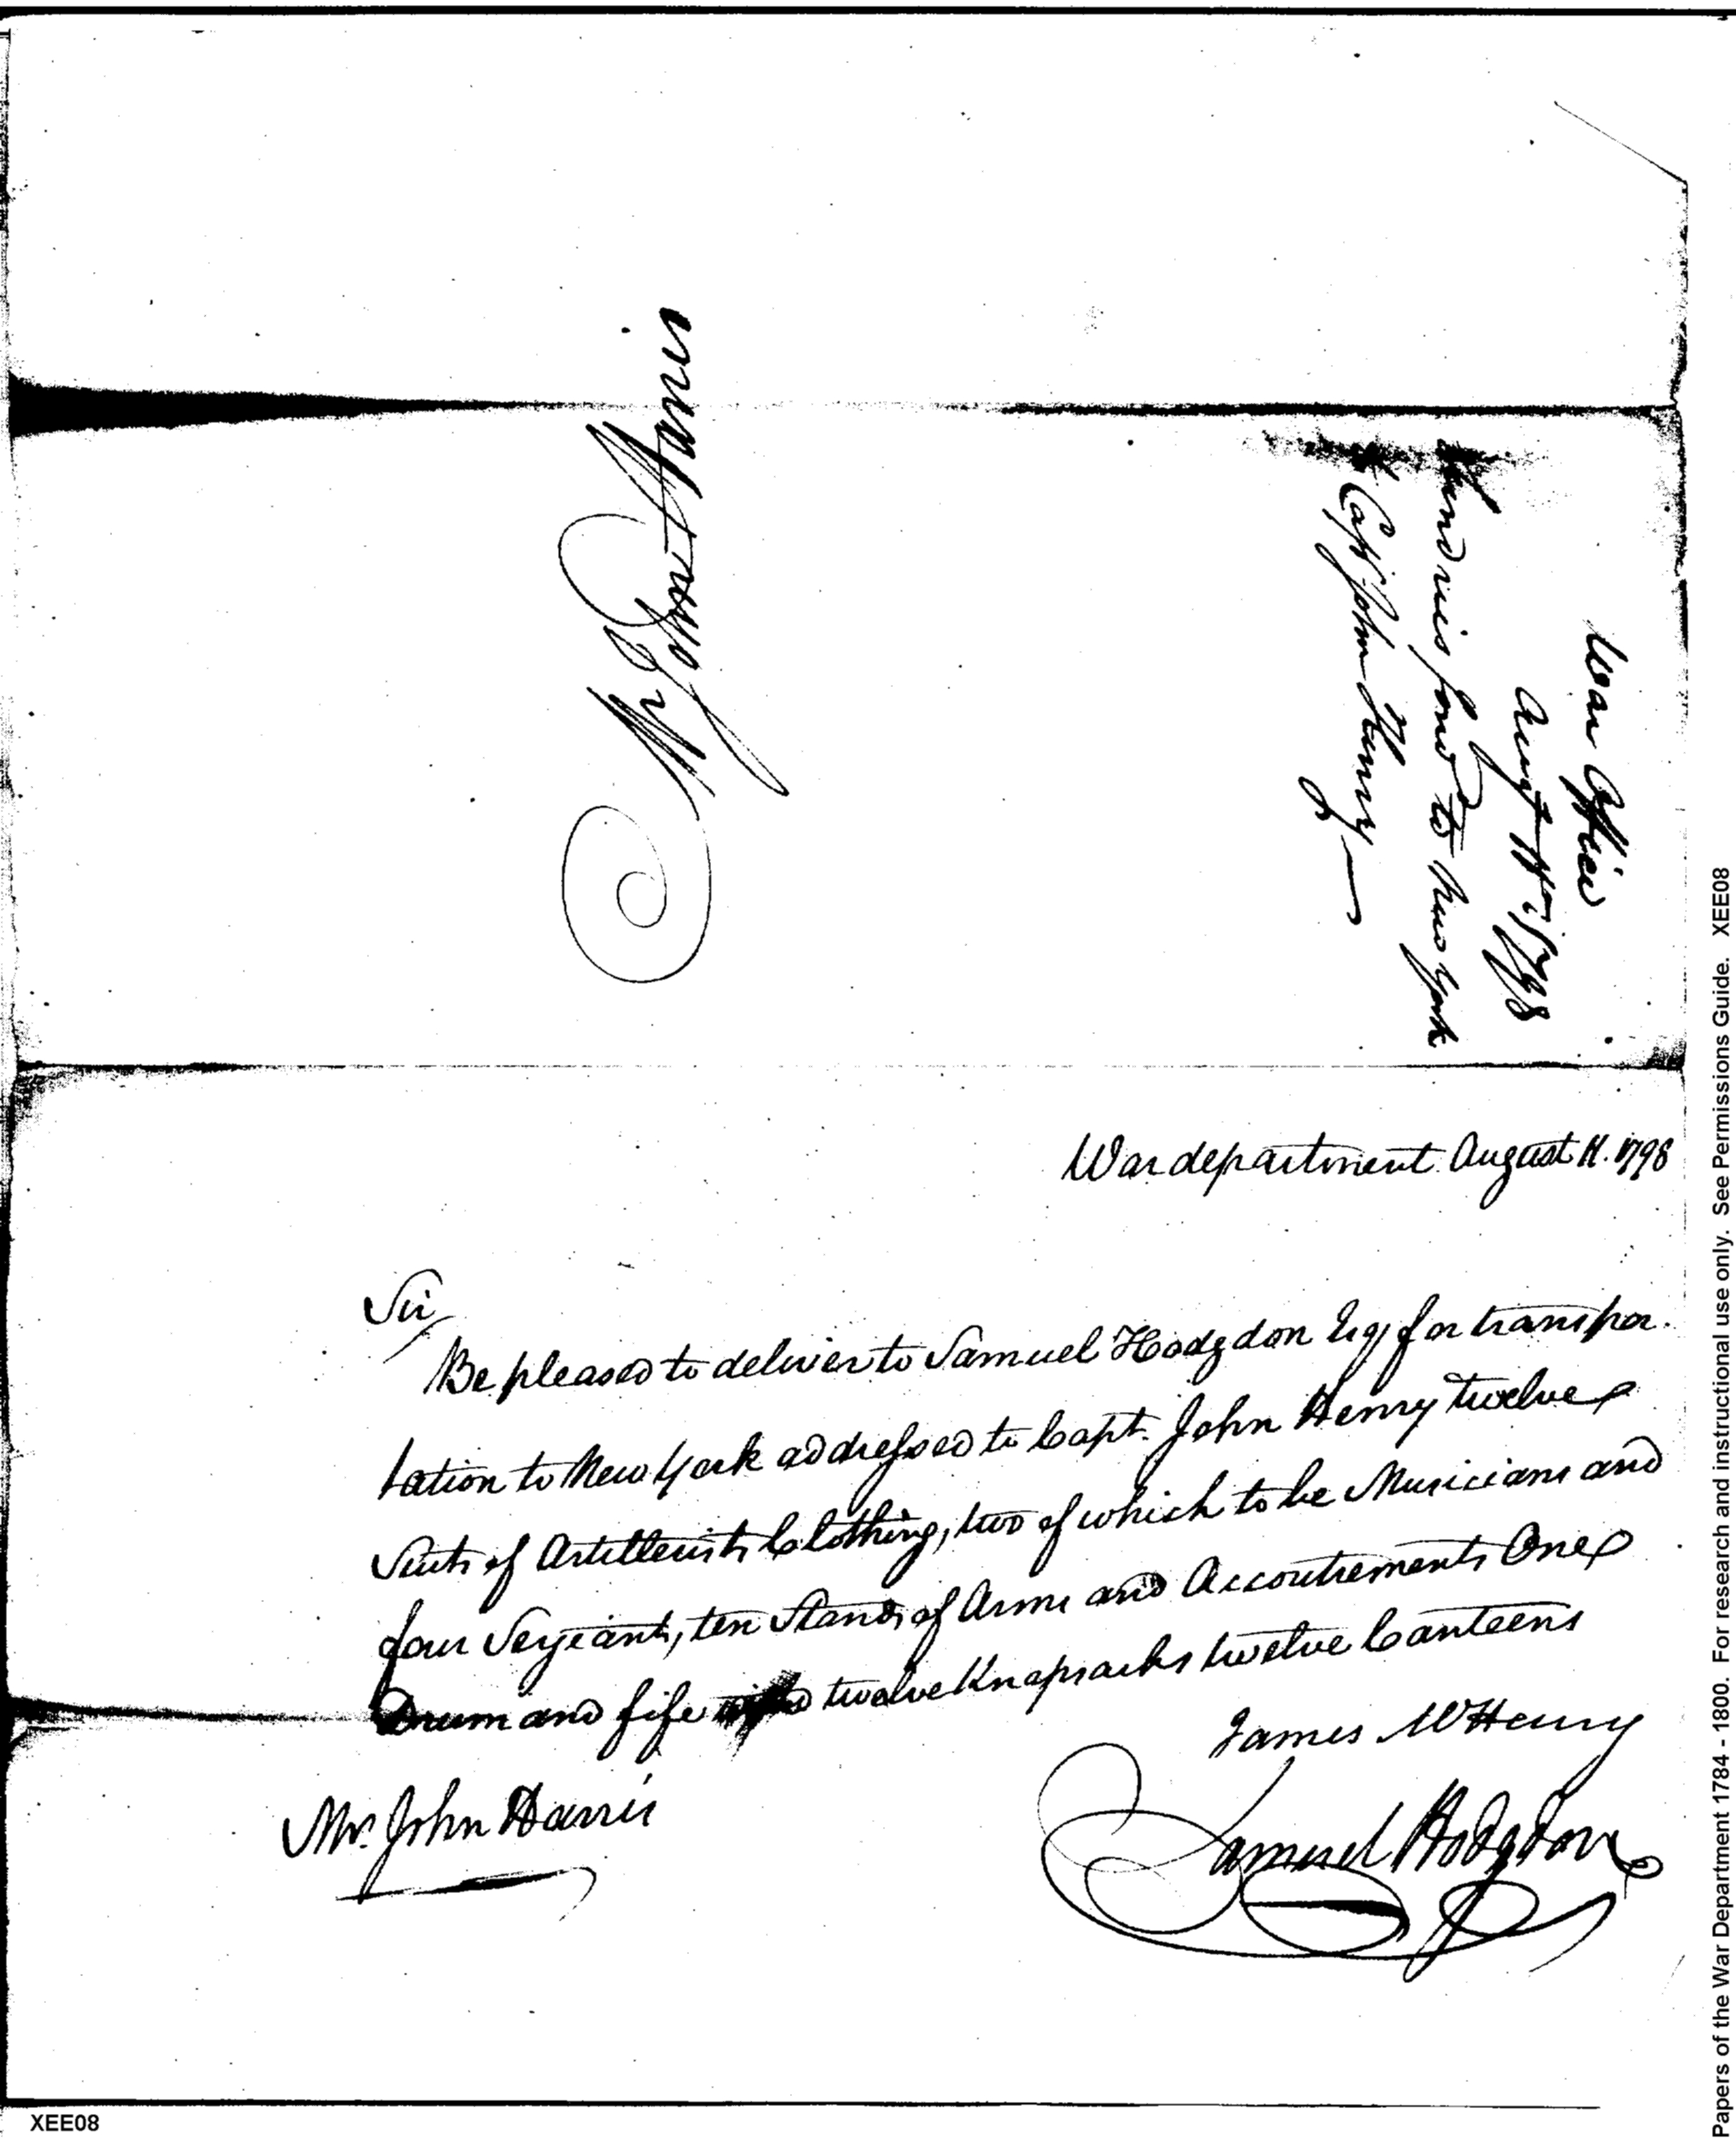 Mr. John Harris
War Office
Augt 11th 1798
Sundries forwd to New York
Capt John Henry
War department August 11. 1798
Sir
Be pleased to deliver to Samuel Hodgdon Esq, for transpor.
tation to New York addressed to Capt. John Henry twelve
Suits of Artillerists Clothing, two of which to be Musicians and
four Serjeants, ten Stands of Arms and Accoutrements One
Drum and fife twelve Knapsacks twelve Canteens
James McHenry
Samuel Hodgdon
Mr. John Harris
Papers of the War Department 1784 - 1800. For research and instructional use only. See Permissions Guide. XEE08
XEE08